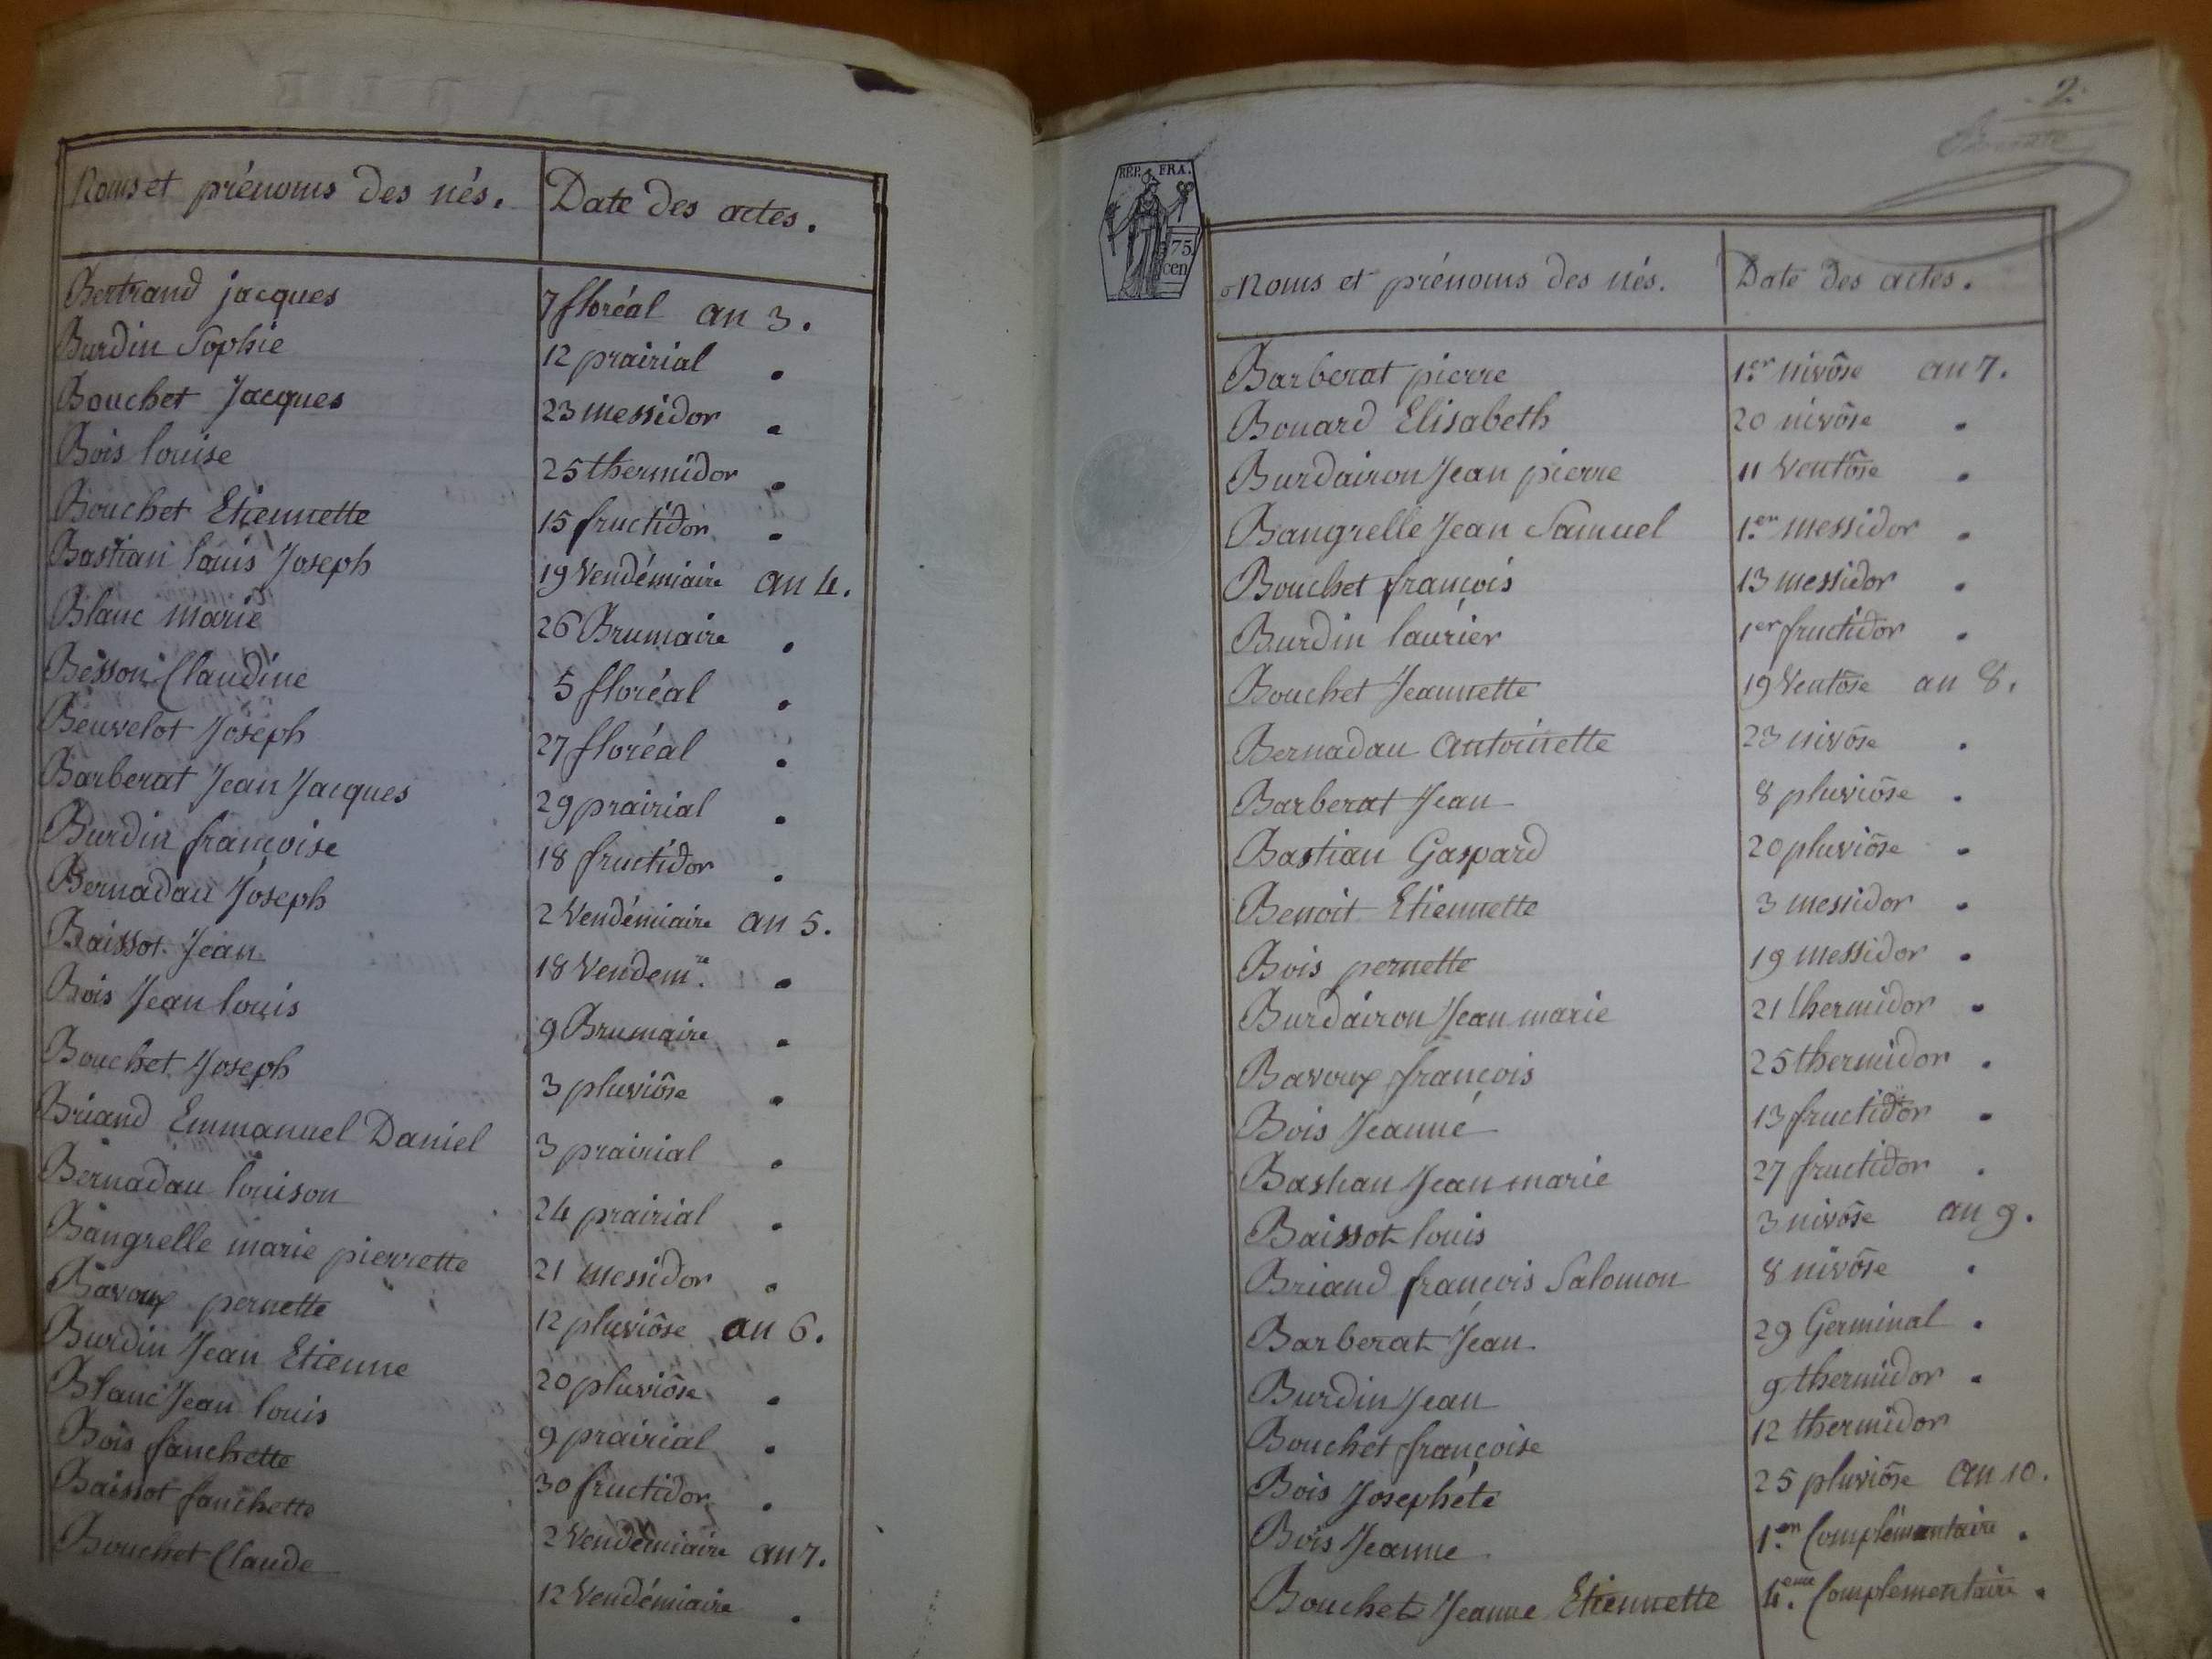 Noms et prénoms des nés. Date des actes.
Bertrand jacques 7 floréal an 3.
Burdin Sophie 12 prairial .
Bouchet Jacques 23 messidor .
Bois louise 25 thermidor .
Bouchet Etiennette 15 fructidor .
Bastian louis Joseph 19 Vendémiaire an 4.
Blanc marie 26 Brumaire .
Besson Claudine 5 floréal .
Beuvelot Joseph 27 floréal .
Barberat Jean Jacques 29 prairial .
Burdin françoise 18 fructidor .
Bernadau Joseph 2 Vendémiaire an 5.
Baissot Jean 18 Vendem.re .
Bois Jean louis 9 Brumaire .
Bouchet Joseph 3 pluviôse .
Briand Emmanuel Daniel 3 prairial .
Bernadau louison 24 prairial .
Bangrelle marie pierrette 21 messidor .
Bavoux pernette 12 pluviôse an 6.
Burdin Jean Etienne 20 pluviôse .
Blanc Jean louis 9 prairial .
Bois fanchette 30 fructidor .
Baissot fanchette 2 Vendémiaire an 7.
Bouchet Claude 12 Vendémiaire .
2.
RÉP. FRA.
75
cen
Noms et prénoms des nés. Date des actes.
Barberat pierre 1.er nivôse an 7.
Bouard Elisabeth 20 nivôse .
Burdairon Jean pierre 11 Ventôse .
Bangrelle Jean Samuel 1.er messidor .
Bouchet françois 13 messidor .
Burdin laurier 1er fructidor .
Bouchet Jeannette 19 Ventôse an 8.
Bernadau Antoinette 23 nivôse .
Barberat Jean 8 pluviôse .
Bastian Gaspard 20 pluviôse .
Benoit Etiennette 3 messidor .
Bois pernette 19 messidor .
Burdairon Jean marie 21 thermidor .
Bavoux françois 25 thermidor .
Bois Jeanne 13 fructidor .
Bastian Jean marie 27 fructidor .
Baissot louis 3 nivôse an 9.
Briand françois Salomon 8 nivôse .
Barberat Jean 29 Germinal .
Burdin Jean 9 thermidor .
Bouchet françoise 12 thermidor
Bois Josephéte 25 pluviôse an 10.
Bois Jeanne 1.er Complémentaire .
Bouchet Jeanne Etiennette 4.eme Complementaire .